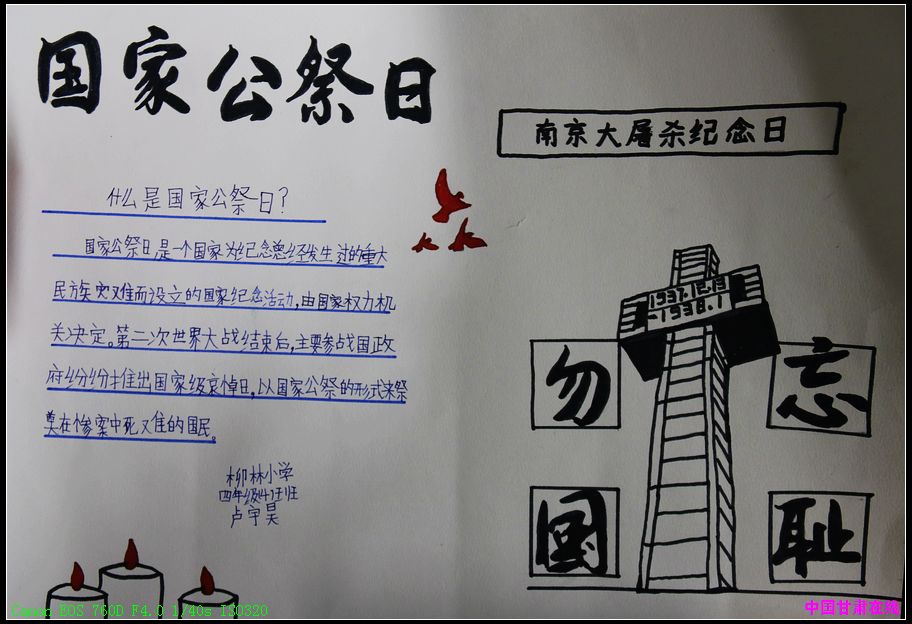 国家公祭日
南京大屠杀纪念日
什么是国家公祭日?
国家公祭日是一个国家为纪念曾经发生过的重大
民族灾难而设立的国家纪念活动,由国家权力机
关决定。第二次世界大战结束后,主要参战国政
府纷纷推出国家级哀悼日,以国家公祭的形式来祭
奠在惨案中死难的国民。
柳林小学
四年级4班
卢宇昊
1937.12.13
-1938.1
勿忘
国耻
Canon EOS 760D F4.0 1/40s ISO320
中国甘肃在线